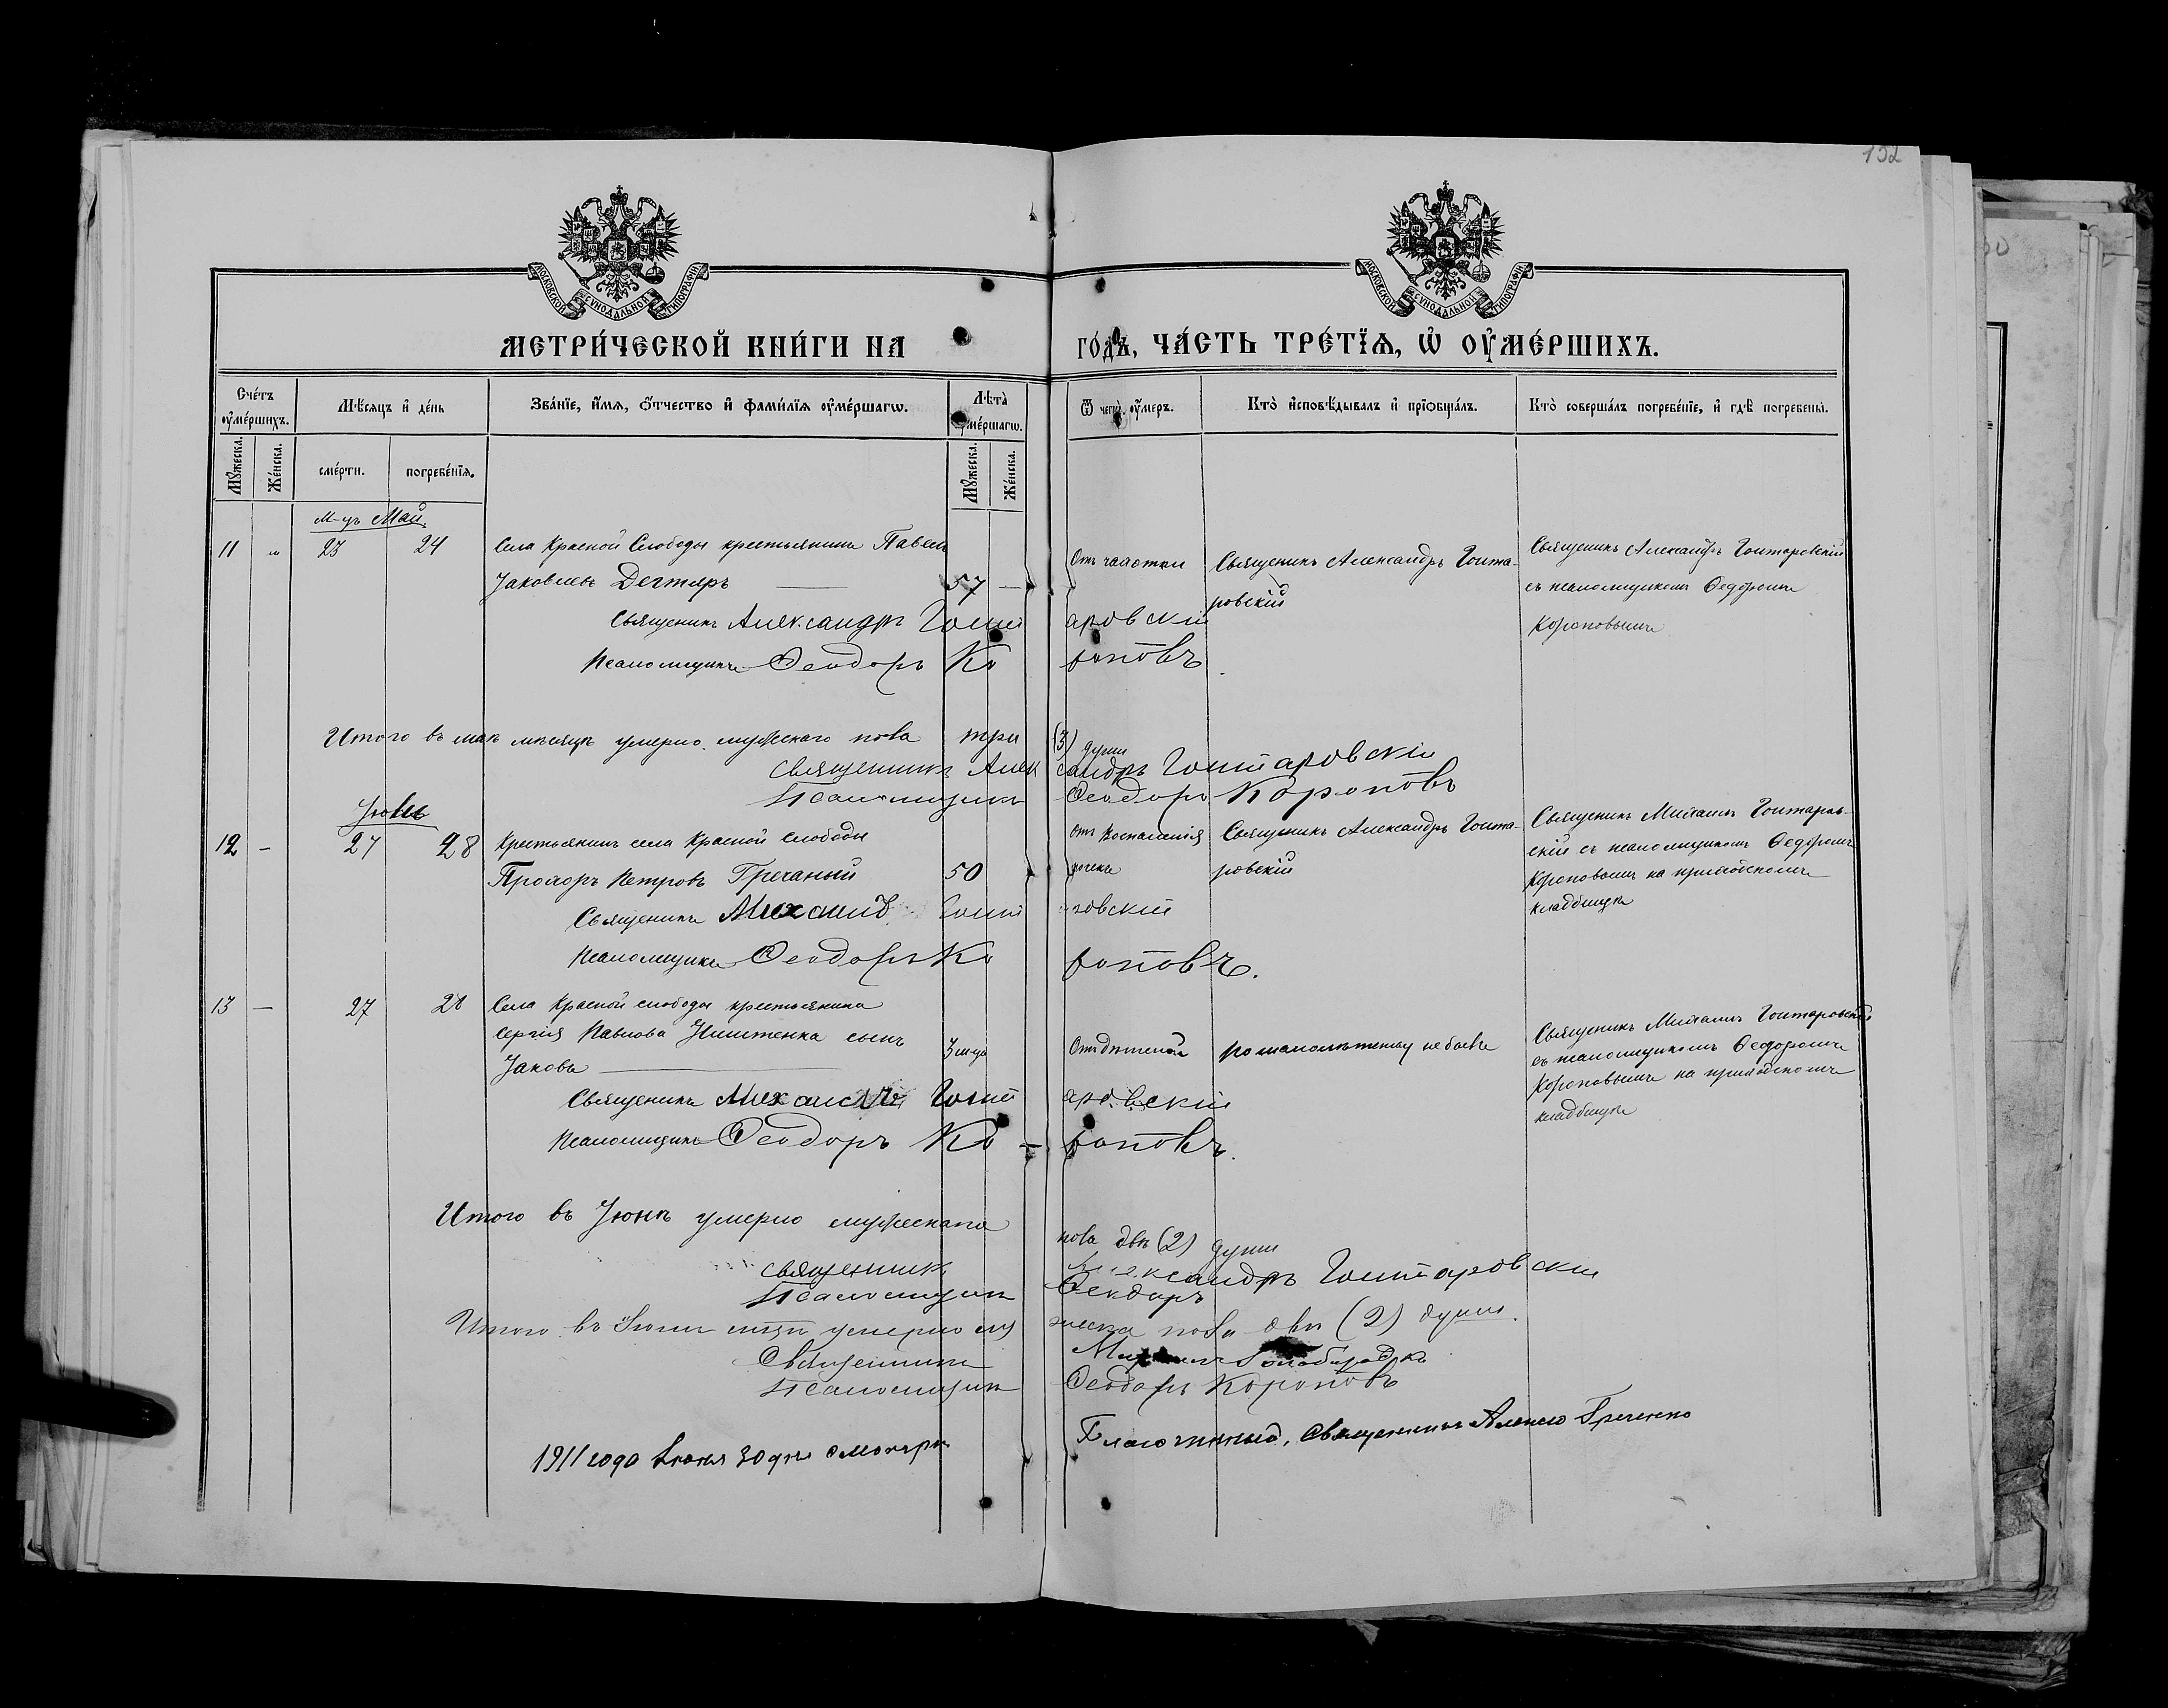 132
МОСКОВСКОЙ СѴНОДАЛЬНОЙ ТИПОГРАФІИ
МОСКОВСКОЙ СѴНОДАЛЬНОЙ ТИПОГРАФІИ
МЕТРИ́ЧЕСКОЙ КНИ́ГИ НА ГО́ДЪ, ЧА́СТЬ ТРЕ́ТЇѦ, Ѡ҆ ОУ҆МЕ́РШИХЪ.
Сче́тъ оу҆ме́ршихъ.
Мѣ́сяцъ и҆ де́нь
Зва́нїе, и҆́мѧ, ѻ҆́тчество и҆ фами́лїѧ оу҆ме́ршагѡ.
Лѣта̀ оу҆ме́ршагѡ.
Ѿ чегѡ̀ оу҆́меръ.
Кто̀ и҆сповѣ́дывалъ и҆ прїѡбща́лъ.
Кто̀ соверша́лъ погребе́нїе, и҆ гдѣ̀ погребены̀.
Мꙋ́жеска.
Же́нска.
сме́рти.
погребе́нїѧ.
Мꙋ́жеска.
Же́нска.
М-цъ Май
11 " 23 24 Села Красной Слободы крестьянинъ Павелъ
Яковлевъ Дегтяръ 57 —
Отъ чахотки
Священикъ Александръ Гонта-
ровскій
Священикъ Александръ Гонтаровскій
съ псаломщикомъ Ѳедоромъ
Короповымъ
Священикъ Александръ Гонтаровскій
Псаломщикъ Ѳеодоръ Короповъ
Итого въ маѣ мѣсяцѣ умерло мужескаго пола три (3) души
Священникъ Александръ Гонтаровскій
Псаломщикъ Ѳеодоръ Короповъ
Іюнь
12 — 27 28 Крестьянинъ села Красной слободы
Прохоръ Петровъ Гречаный 50
Отъ воспаленія
почекъ
Священикъ Александръ Гонта-
ровскій
Священикъ Михаилъ Гонтаров-
скій съ псаломщикомъ Ѳедоромъ
Короповымъ на приходскомъ
кладбищѣ
Священикъ Михаилъ Гонтаровскій
Псаломщикъ Ѳеодоръ Короповъ.
13 — 27 28 Села Красной слободы крестьянина
Сергія Павлова сынъ
Яковъ 3 м-ца
Отъ дѣтской
по малолѣтству не бывъ
Священикъ Михаилъ Гонтаровскій
съ псаломщикомъ Ѳедоромъ
Короповымъ на приходскомъ
кладбищѣ
Священикъ Михаилъ Гонтаровскій
Псаломщикъ Ѳеодоръ Короповъ.
Итого въ Іюнѣ умерло мужескаго пола двѣ (2) души
Священникъ Александръ Гонтаровскій
Псаломщикъ Ѳеодоръ
Итого въ Іюнѣ умерло мужеска пола двѣ (2) души.
Священникъ
Псаломщикъ Ѳеодоръ Короповъ
1911 года Іюня 30 дня смотрѣлъ
Благочинный, Священникъ Алексій